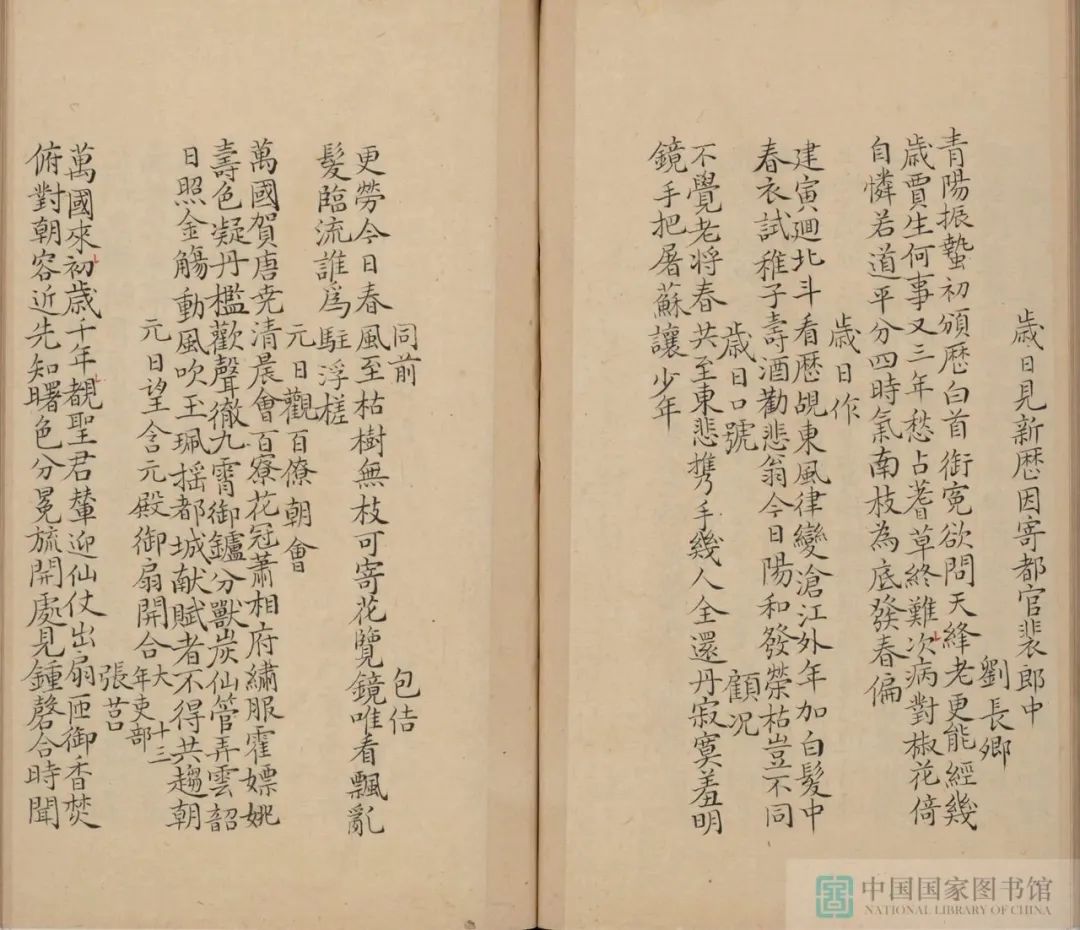 歳日見新歴因寄都官裴郎中
劉長卿
青陽振蟄初頒歴白首銜寃欲問天絳老更能經幾
歳賈生何事又三年愁占蓍草終難次病對椒花倍
自憐若道平分四時氣南枝為底發春偏
歳日作
建寅廻北斗看歴覘東風律變滄江外年加白髮中
春衣試稚子壽酒勸悲翁今日陽和發榮枯豈不同
歳日口號 顧况
不覺老将春共至東悲携手幾人全還丹寂寞羞明
鏡手把屠蘇讓少年
同前 包佶
更勞今日春風至枯樹無枝可寄花覽鏡唯看飄亂
髮臨流誰爲駐浮槎
元日觀百僚朝會
萬國賀唐尭清晨會百寮花冠蕭相府繡服霍嫖姚
壽色凝丹檻歡聲徹九霄御鑪分獸炭仙管弄雲韶
日照金觴動風吹玉珮揺都城献賦者不得共趨朝
元日望含元殿御扇開合大十三年吏部
張莒
萬國來初歳千年覩聖君輦迎仙仗出扇匝御香焚
俯對朝容近先知曙色分冕旒開處見鍾磬合時聞
中国国家图书馆
NATIONAL LIBRARY OF CHINA